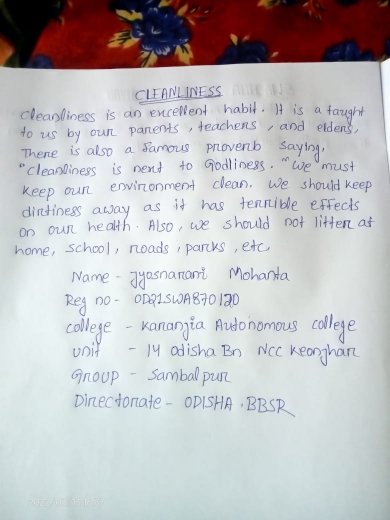 CLEANLINESS
Cleanliness is an excellent habit. It is a taught
to us by our parents, teachers, and elders,
There is also a famous proverb saying,
"Cleanliness is next to Godliness. "We must
keep our environment clean. We should keep
dirtiness away as it has terrible effects
on our health. Also, we should not litter at
home, school, roads, parks, etc,
Name - Jyosnarani Mohanta
Reg no - OD21SWA870120
college - Karanjia Autonomous college
Unit - 14 odisha Bn NCC Keonjhar
Group - Sambalpur
Directorate - ODISHA, BBSR